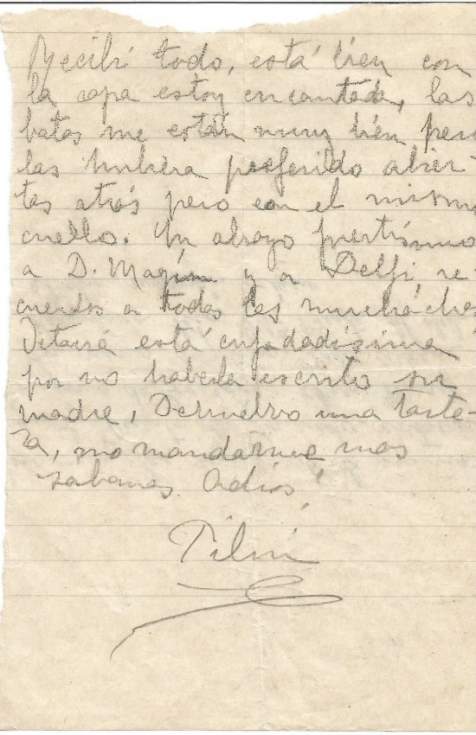 Recibí todo, está bien con
la capa estoy encantada, las
batas me están muy bién pero
las hubiera preferido abier-
tas atrás pero con el mismo
cuello. Un abrazo fuertísimo
a D. Magín y a Delfi re-
cuerdos a todas las muchachas
está enfadadísima
por no haberla escrito su
madre, Devuelvo una Tarte-
ra, no mandarme mas
sabanas. Adiós
Pilar